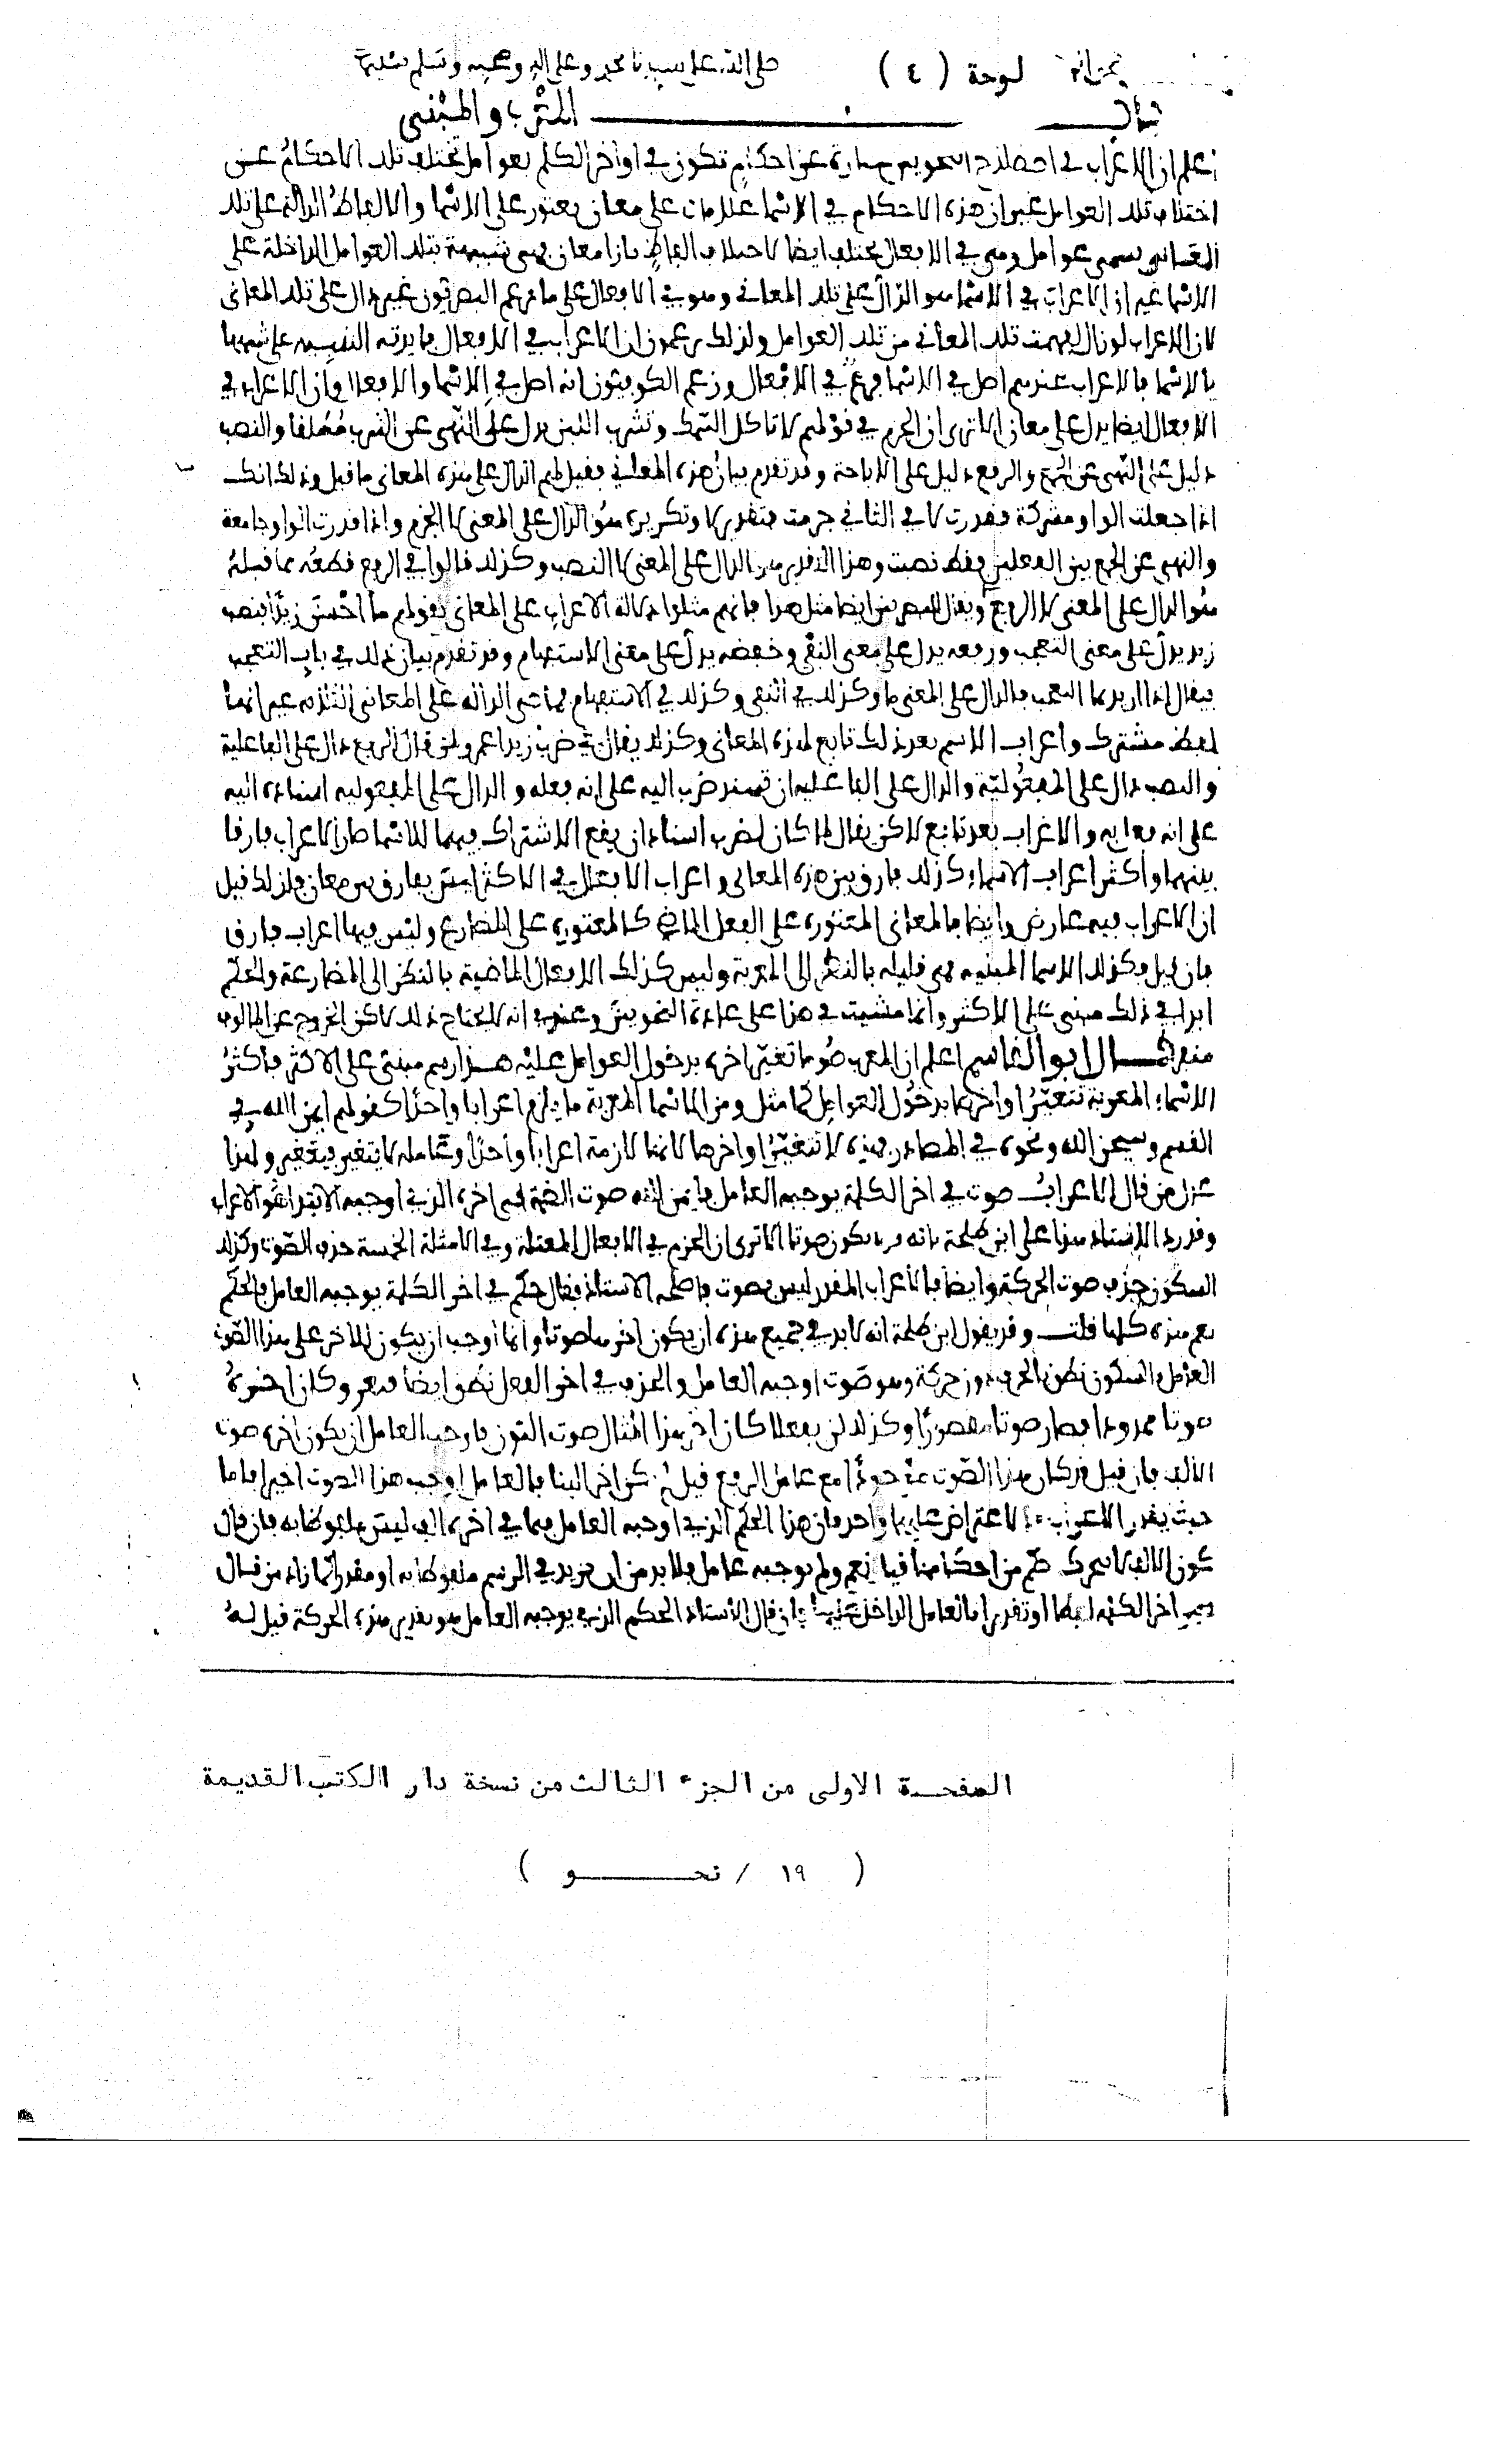 لوحة ( ٤ ) صلى الله على سيدنا محمد وعلى اله وصحبه وسلم تسليما
باب المعرب والمبني
اعلم ان الاعراب في اصطلاح النحويين عبارة عن احكام تكون في اواخر الكلم بعوامل تختلف تلك الاحكام عن
اختلاف تلك العوامل غير ان هذه الاحكام في الاسما علامات على معان تعتور على الاسما والالفاظ الدالة على تلك
المعاني تسمى عوامل وهي في الافعال تختلف ايضا لاختلاف الفاظ بازا معان هي شبيهة بتلك العوامل الداخلة على
الاسما غير ان الاعراب في الاسما هو الدال على تلك المعاني وهو في الافعال على ما زعم البصريون غير دال على تلك المعاني
لان الاعراب لو زال لفهمت تلك المعاني من تلك العوامل ولذلك يزعمون ان الاعراب في الافعال
بالاسما فالاعراب عندهم اصل في الاسما فرع في الافعال وزعم الكوفيون انه اصل في الاسما والافعال وان الاعراب في
الافعال ايضا يدل على معان الا ترى ان الجزم في قولهم لا تاكل السمك وتشرب اللبن يدل على النهي عن الضرب مطلقا والنصب
دليل على النهي عن الجمع والرفع دليل على الاباحة وقد تقدم بيان هذه المعاني فقيل لهم الدال على هذه المعاني ما قبل وذلك انك
اذا جعلت الواو مشركة فقدرت لا في الثاني جزمت فتقدير لا وتكريره هو الدال على المعنى لا الجزم واذا قدرت الواو جامعة
والنهي عن الجمع بين الفعلين فقط نصبت وهذا التقدير هو الدال على المعنى لا النصب وكذلك قالوا في الرفع قطعه مما قبله
هو الدال على المعنى لا الرفع ويقال للبصريين ايضا مثل هذا فانهم مثلوا دلالة الاعراب على المعاني بقولهم ما احسن زيدا فنصب
زيد يدل على معنى التعجب ورفعه يدل على معنى النفي وخفضه يدل على معنى الاستفهام وقد تقدم بيان ذلك في باب التعجب
فيقال اذا اريد بما التعجب فالدال على المعنى ما وكذلك في النفي وكذلك في الاستفهام فما هي الدالة على المعاني الثلاثة غير انها
لفظ مشترك واعراب الاسم بعد ذلك تابع لهذه المعاني وكذلك يقال في ضرب زيد عمرو لمن قال الرفع دال على الفاعلية
والنصب دال على المفعولية والدال على الفاعلية ان تسند ضرب اليه على انه فعله والدال على المفعولية اسناده اليه
على انه مفعول به والاعراب بعد تابع لاكن يقال لما كان لضرب اسنادان يقع الاشتراك فيهما للاسما طرا الاعراب فارقا
بينهما واكثر اعراب الاسماء كذلك فارق بين هذه المعاني واعراب الافعال في الاكثر ليس بفارق بين معان فلذلك قيل
ان الاعراب فيه عارض وايضا فالمعاني المعتورة على الفعل الماضي كالمعتورة على المضارع وليس فيها اعراب فارق
فان قيل وكذلك الاسما المبنية فهي قليلة بالنظر الى المعربة وليس كذلك الافعال الماضية بالنظر الى المضارعة والحكم
ابدا في ذلك مبني على الاكثر وانما مشيت في هذا على عادة النحويين وعندي انه لا يحتاج لذلك لاكن الخروج عن المالوف
قال ابو القاسم اعلم ان المعرب هو ما تغير اخره بدخول العوامل عليه هذا رسم مبني على الاكثر فاكثر
الاسماء المعربة تتغير اواخرها بدخول العوامل كما مثل ومن الاسما المعربة ما يلزم اعرابا واحدا كقولهم ايمن الله في
القسم وسبحن الله ونحوه في المصادر فهذه لا تتغير اواخرها لانها لازمة اعرابا واحدا وعاملها لا يتغير فيتغير ولهذا
عدل من قال الاعراب صوت في اخر الكلمة يوجبه العامل فايمن الله صوت الضمة في اخره الذي اوجبه الابتدا هو الاعراب
وقد رد الاستاذ هذا على ابن طلحة بانه قد لا يكون صوتا الا ترى ان الجزم في الافعال المعتلة وفي الامثلة الخمسة حذف الصوت وكذلك
السكون حذف صوت الحركة وايضا فالاعراب المقدر ليس بصوت فاصلحه الاستاذ فقال حكم في اخر الكلمة يوجبه العامل فالحكم
يعم هذه كلها قلت وقد يقول ابن طلحة انه لابد في جميع هذه ان يكون اخرها صوتا وانما اوجب ان يكون الاخر على هذا الصوت
العامل فالسكون نطق بالحرف دون حركة وهو صوت اوجبه العامل والحذف في اخر الفعل نطق ايضا وكان اخره
صوتا ممدودا فصار صوتا مقصورا وكذلك لن يفعلا كان اخر هذا المثال صوت النون فاوجب العامل ان يكون اخره صوت
الالف فان قيل قد كان هذا الصوت موجودا مع عامل الرفع قيل لم يكن اخر البنا فالعامل اوجب هذا الصوت اخيرا فاما
حيث يقدر الاعراب فالاعتراض عليهما واحد فان هذا الحكم الذي اوجبه العامل فيما في اخره الف ليس ملفوظا به فان قال
كون الالف لا تتحرك حكم من احكامها قيل نعم ولم يوجبه عامل فلا بد من ان يزيد في الرسم ملفوظا به او مقدرا كما زاد من قال
تغيير اخر الكلمة لفظا او تقديرا بالعامل الداخل عليها فان قال الاستاذ الحكم الذي يوجبه العامل هو تقدير هذه الحركة قيل له
الصفحة الاولى من الجزء الثالث من نسخة دار الكتب القديمة
( ١٩ / نحو )